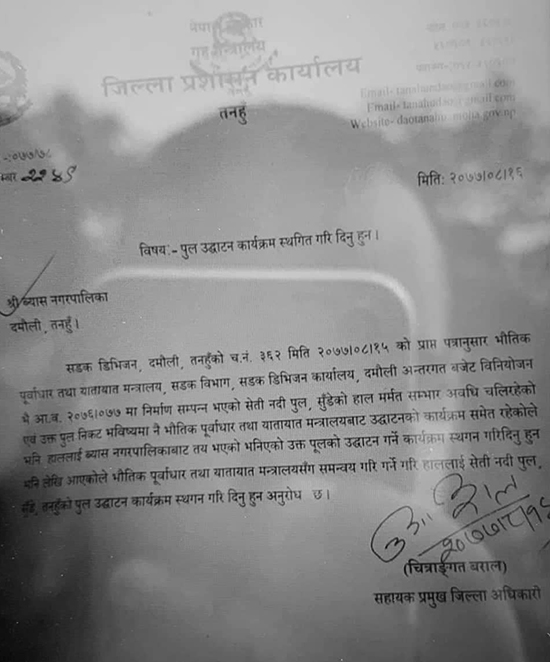 नेपाल सरकार
गृह मन्त्रालय
जिल्ला प्रशासन कार्यालय
तनहुँ
Website- daotanahu.moha.gov.np
-२०७७/७८
२२४९
मिति: २०७७/०८/१६
विषय:- पुल उद्घाटन कार्यक्रम स्थगित गरि दिनु हुन ।
श्री ब्यास नगरपालिका
दमौली, तनहुँ ।
सडक डिभिजन, दमौली, तनहुँको च.नं. ३६२ मिति २०७७/०८/१५ को प्राप्त पत्रानुसार भौतिक
पूर्वाधार तथा यातायात मन्त्रालय, सडक विभाग, सडक डिभिजन कार्यालय, दमौली अन्तरगत बजेट विनियोजन
भै आ.व. २०७६/०७७ मा निर्माण सम्पन्न भएको सेती नदी पुल, सुँडेको हाल मर्मत सम्भार अवधि चलिरहेको
एवं उक्त पुल निकट भविष्यमा नै भौतिक पूर्वाधार तथा यातायात मन्त्रालयबाट उद्घाटनको कार्यक्रम समेत रहेकोले
भनि हाललाई ब्यास नगरपालिकाबाट तय भएको भनिएको उक्त पूलको उद्घाटन गर्ने कार्यक्रम स्थगन गरिदिनु हुन
भनि लेखि आएकोले भौतिक पूर्वाधार तथा यातायात मन्त्रालयसँग समन्वय गरि गर्ने गरि हाललाई सेती नदी पुल,
सुँडे, तनहुँको पुल उद्घाटन कार्यक्रम स्थगन गरि दिनु हुन अनुरोध छ।
२०७७/८/१६
(चित्राङ्गत बराल)
सहायक प्रमुख जिल्ला अधिकारी